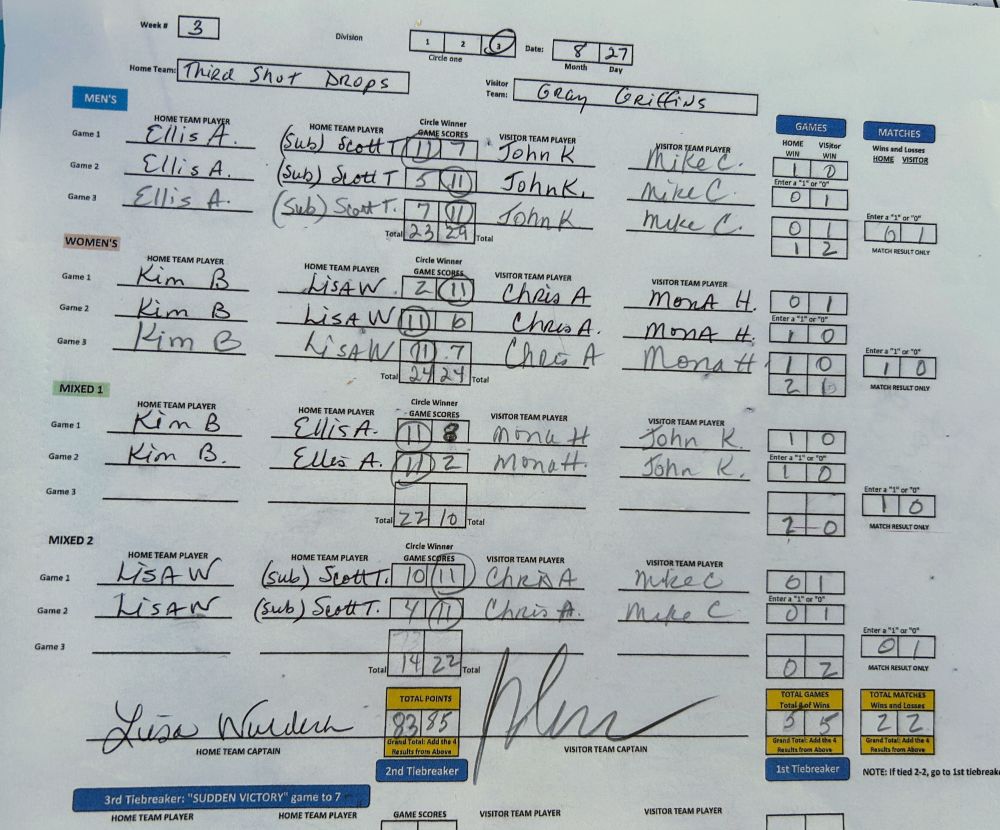 Week # 3 Division 1 2 3 Date: 8 27
Circle one Month Day
Home Team: Third Shot Drops Visitor Team: Gray Griffins
MEN'S GAMES MATCHES
HOME TEAM PLAYER HOME TEAM PLAYER Circle Winner GAME SCORES VISITOR TEAM PLAYER VISITOR TEAM PLAYER HOME WIN Visitor WIN Wins and Losses HOME VISITOR
Game 1 Ellis A. (Sub) Scott T 11 7 John K Mike C. 1 0
Enter a "1" or "0"
Game 2 Ellis A. (Sub) Scott T 5 11 John K. Mike C 0 1
Game 3 Ellis A. (Sub) Scott T. 7 11 John K Mike C. 0 1 Enter a "1" or "0" 0 1
Total 23 29 Total 1 2 MATCH RESULT ONLY
WOMEN'S
HOME TEAM PLAYER HOME TEAM PLAYER Circle Winner GAME SCORES VISITOR TEAM PLAYER VISITOR TEAM PLAYER
Game 1 Kim B LiSA W 2 11 Chris A MonA H. 0 1
Enter a "1" or "0"
Game 2 Kim B LiSA W 11 6 Chris A. MonA H. 1 0
Game 3 Kim B LiSA W 11 7 Chris A Mona H 1 0 Enter a "1" or "0" 1 0
Total 24 24 Total 2 MATCH RESULT ONLY
MIXED 1
HOME TEAM PLAYER HOME TEAM PLAYER Circle Winner GAME SCORES VISITOR TEAM PLAYER VISITOR TEAM PLAYER
Game 1 Kim B Ellis A. 11 8 Mona H John K. 1 0
Enter a "1" or "0"
Game 2 Kim B. Ellis A. 11 2 Mona H. John K. 1 0
Game 3 Enter a "1" or "0" 1 0
Total 22 10 Total 2 0 MATCH RESULT ONLY
MIXED 2
HOME TEAM PLAYER HOME TEAM PLAYER Circle Winner GAME SCORES VISITOR TEAM PLAYER VISITOR TEAM PLAYER
Game 1 LiSA W (Sub) Scott T. 10 11 Chris A Mike C 0 1
Enter a "1" or "0"
Game 2 LiSA W (Sub) Scott T. 4 11 Chris A. Mike C 0 1
Game 3 Enter a "1" or "0" 0 1
Total 14 22 Total 0 2 MATCH RESULT ONLY
TOTAL POINTS TOTAL GAMES Total # of Wins TOTAL MATCHES Wins and Losses
Lisa 83 85 5 5 2 2
HOME TEAM CAPTAIN Grand Total: Add the 4 Results from Above VISITOR TEAM CAPTAIN Grand Total: Add the 4 Results from Above Grand Total: Add the 4 Results from Above
2nd Tiebreaker 1st Tiebreaker NOTE: If tied 2-2, go to 1st
3rd Tiebreaker: "SUDDEN VICTORY" game to 7
HOME TEAM PLAYER HOME TEAM PLAYER GAME SCORES VISITOR TEAM PLAYER VISITOR TEAM PLAYER